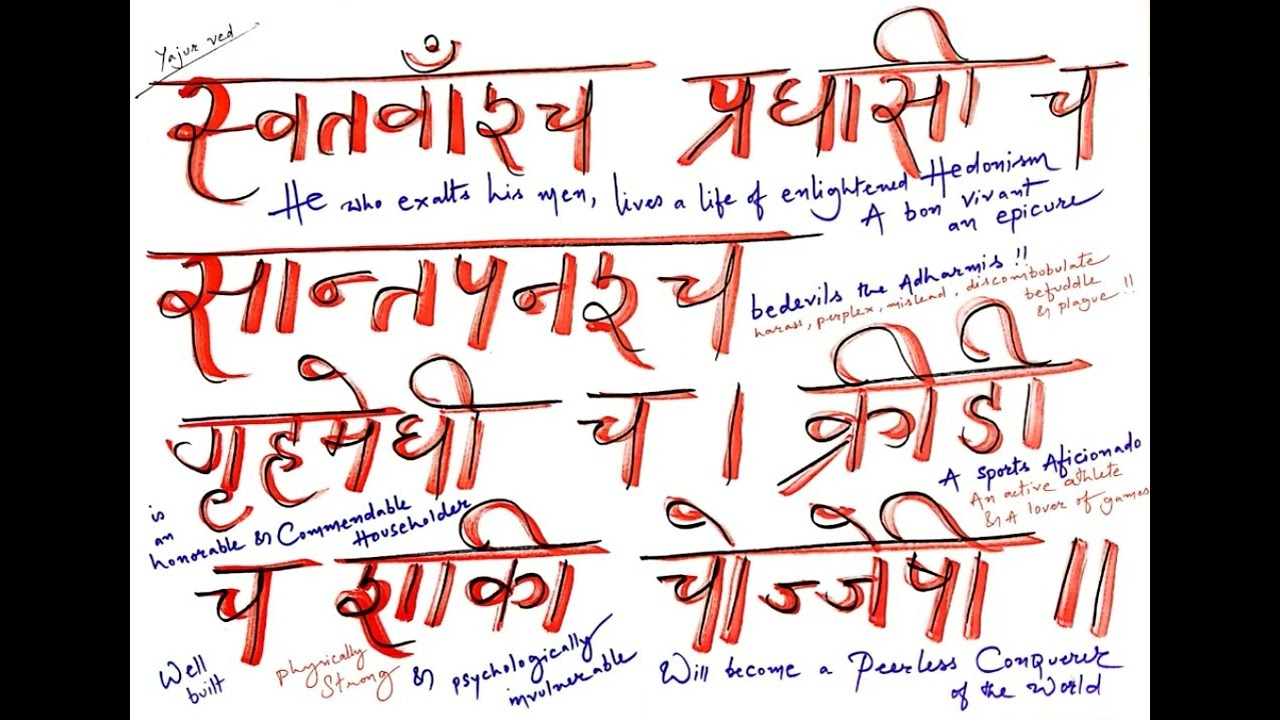 Yajur ved
स्वतवाँश्च प्रघासी च
He who exalts his men, lives a life of enlightened Hedonism
A bon vivant
an epicure
सान्तपनश्च
bedevils the Adharmis !!
harass, perplex, mislead, discombobulate
befuddle
& plague !!
गृहमेधी च । क्रीडी
is
an
honorable & Commendable
Householder
A sports Aficionado
An active athlete
& A lover of games
च शाकी चोज्जेषी ॥
Well
built
physically
Strong
& psychologically
invulnerable
Will become a Peerless Conquerer
of the World